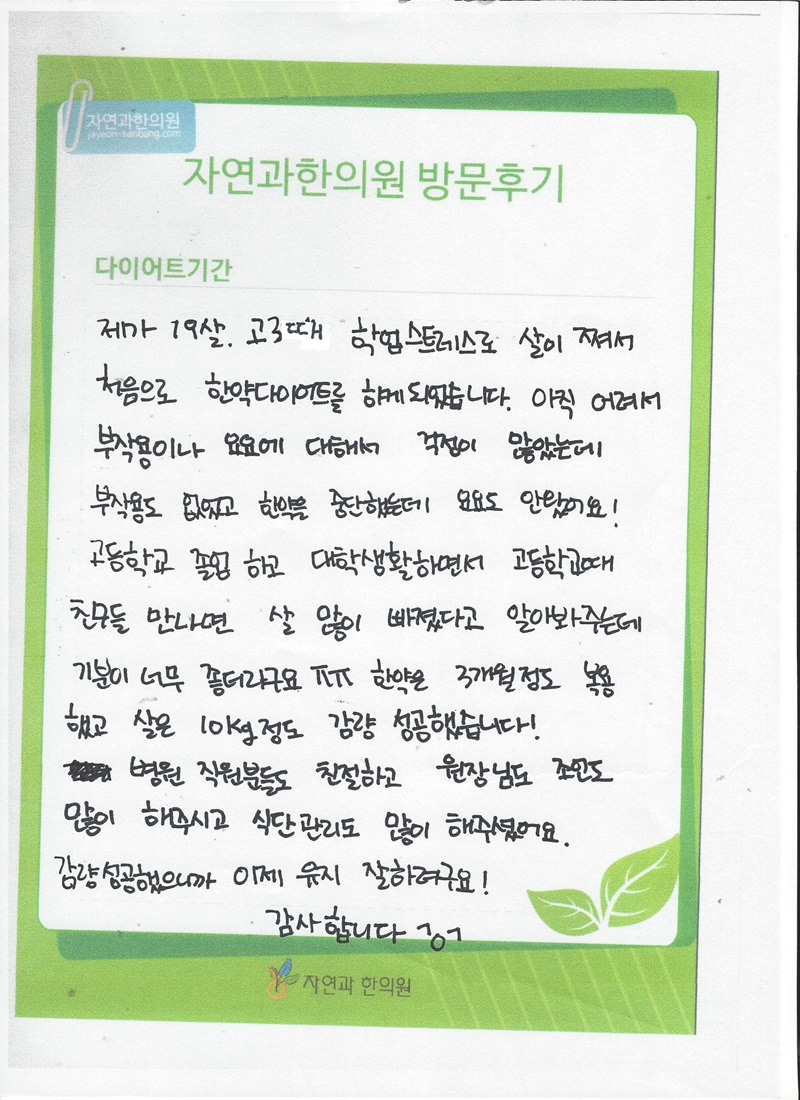 자연과한의원
jayeon-hanbang.com
자연과한의원 방문후기
다이어트기간
제가 19살. 고3때 학업스트레스로 살이 쪄서
처음으로 한약다이어트를 하게되었습니다. 아직 어려서
부작용이나 요요에 대해서 걱정이 많았는데
부작용도 없었고 한약을 중단했는데 요요도 안왔어요!
고등학교 졸업 하고 대학생활하면서 고등학교때
친구들 만나면 살 많이 빠졌다고 알아봐주는데
기분이 너무 좋더라구요 ㅠㅠ 한약은 3개월정도 복용
했고 살은 10kg정도 감량 성공했습니다!
병원 직원분들도 친절하고 원장님도 조언도
많이 해주시고 식단관리도 많이 해주셨어요.
감량성공했으니까 이제 유지 잘하려구요!
감사합니다 ㄱㅇㄱ
자연과 한의원